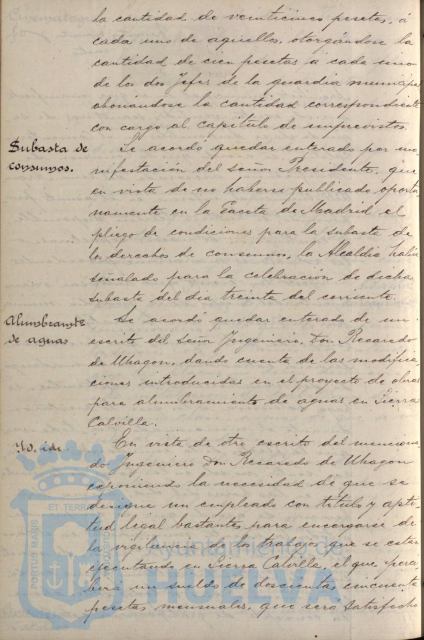 la cantidad de veinticinco pesetas, á
cada uno de aquellos, otorgándose la
cantidad de cien pesetas á cada uno
de los dos Jefes de la guardia municipal
abonándose la cantidad correspondiente
con cargo al capítulo de imprevistos.
Subasta de
consumos.
Se acordó quedar enterado por ma-
nifestación del señor Presidente, que
en vista de no haberse publicado oportu
namente en la Gaceta de Madrid el
pliego de condiciones para la subasta de
los derechos de consumos, la Alcaldía había
señalado para la celebración de dicha
subasta del día treinta del corriente.
Alumbramte
de aguas.
Se acordó quedar enterado de un
escrito del Señor Ingeniero, Don Recaredo
de Uhagon, dando cuenta de las modifica
ciones introducidas en el proyecto de obras
para alumbramiento de aguas en Sierra
Calvilla.
Yd. ide
En vista de otro escrito del menciona
do Ingeniero Don Recaredo de Uhagon
exponiendo la necesidad de que se
designe un empleado con título y apti
tud legal bastante, para encargarse de
la vigilancia de los trabajos que se están
ejecutando en Sierra Calvilla, el que perci
birá un sueldo de doscientas cincuenta
pesetas mensuales, que será satisfecho
PORTUS MARIS ET TERRAE CUSTODIA
Ayuntamiento de
HUELVA